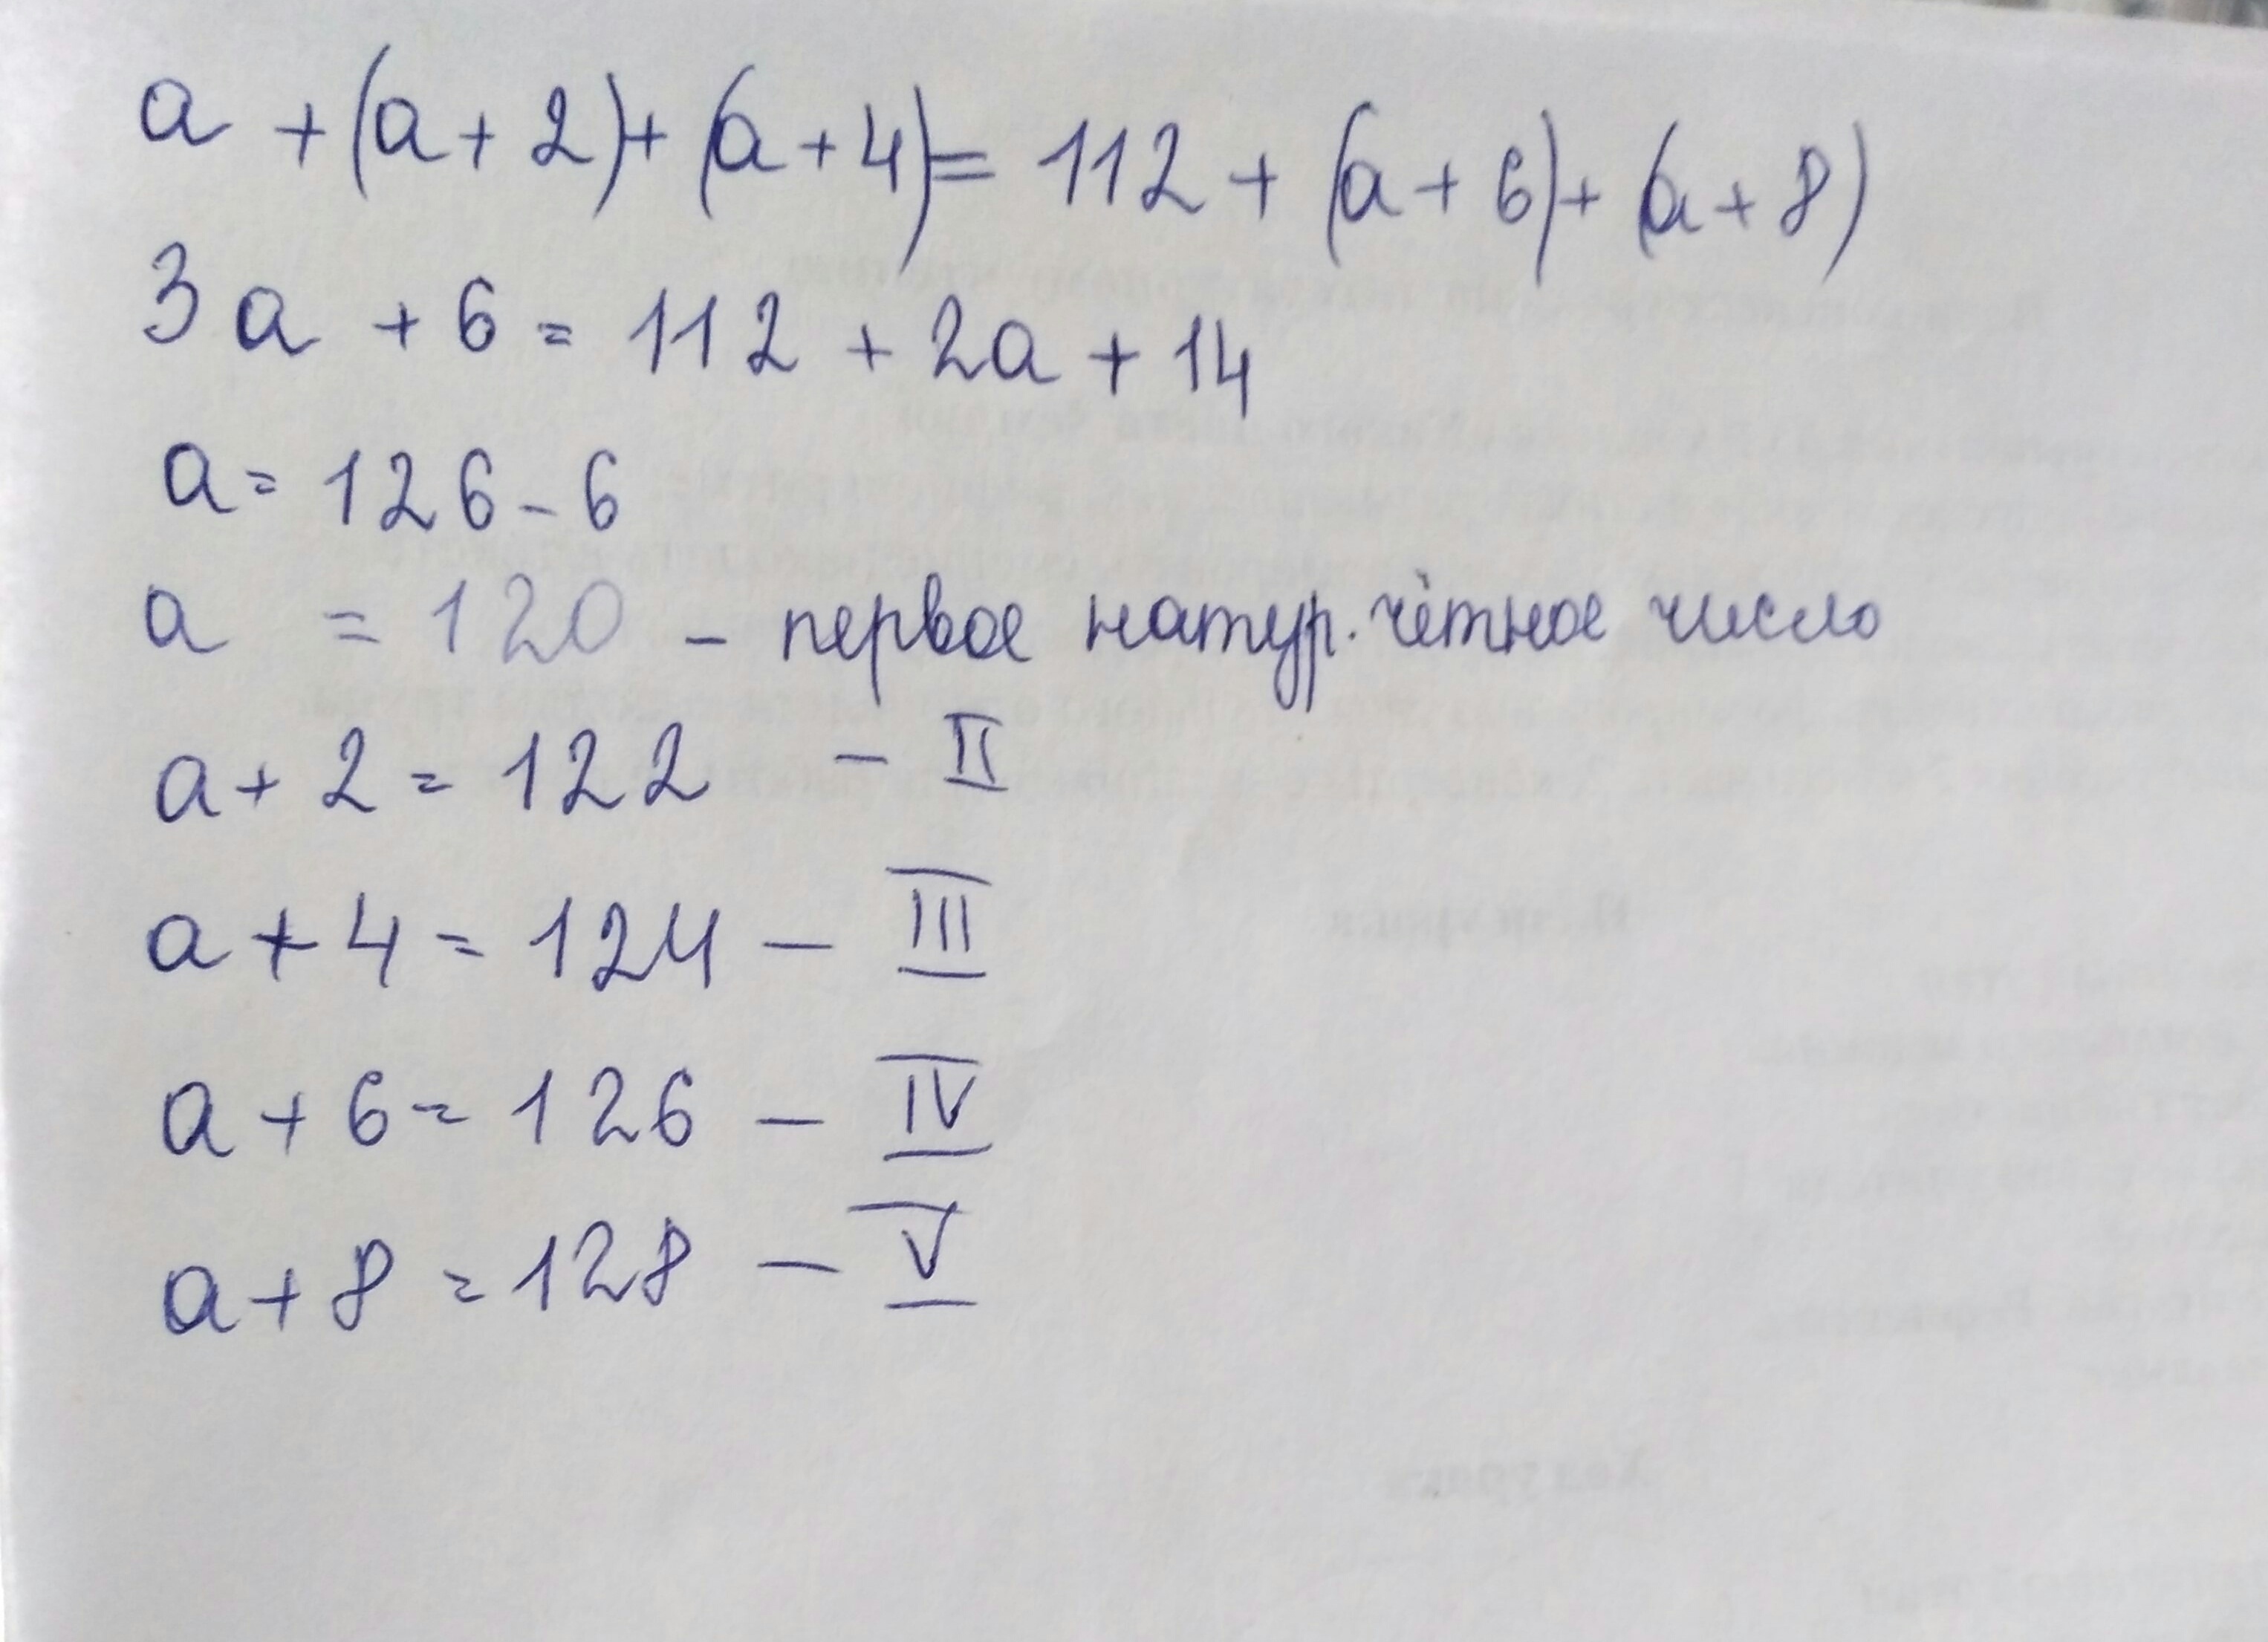 a + (a + 2) + (a + 4) = 112 + (a + 6) + (a + 8)
3a + 6 = 112 + 2a + 14
a = 126 - 6
a = 120 - первое натур. чётное число
a + 2 = 122 - II
a + 4 = 124 - III
a + 6 = 126 - IV
a + 8 = 128 - V